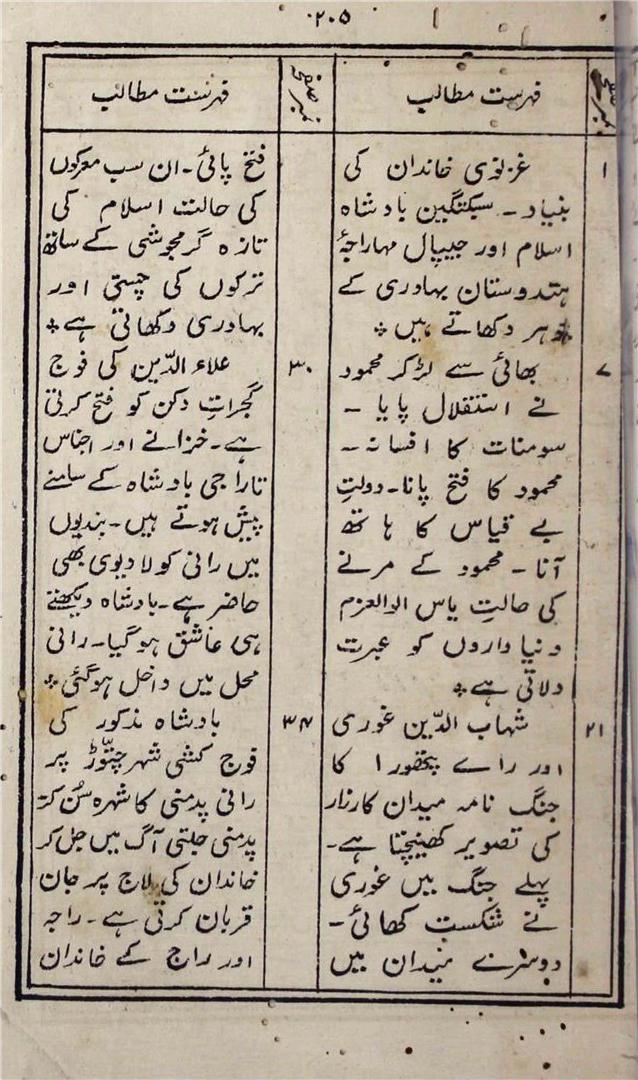 ۲۰۵
نمبر صفحہ
فہرست مطالب
۱
غزنوی خاندان کی
بنیاد۔ سبکتگین بادشاہ
اسلام اور جیپال مہاراجۂ
ہندوستان بہادری کے
جوہر دکھاتے ہیں ٭
۷
بھائی سے لڑکر محمود
نے استقلال پایا ۔
سومنات کا افسانہ ۔
محمود کا فتح پانا۔ دولتِ
بے قیاس کا ہاتھ
آنا ۔ محمود کے مرنے
کی حالتِ یاس الوالعزم
دنیا داروں کو عبرت
دلاتی ہے ٭
۲۱
شہاب الدّین غوری
اور راے پتھورا کا
جنگ نامہ میدان کارزار
کی تصویر کھینچتا ہے۔
پہلے جنگ میں غوری
نے شکست کھائی ۔
دوسرے میدان میں
نمبر صفحہ
فہرست مطالب
فتح پائی۔ ان سب معرکوں
کی حالت اسلام کی
تازہ گرمجوشی کے ساتھ
ترکوں کی چستی اور
بہادری دکھاتی ہے ٭
۳۰
علاء الدّین کی فوج
گجراتِ دکن کو فتح کرتی
ہے۔ خزانے اور اجناس
تاراجی بادشاہ کے سامنے
پیش ہوتے ہیں۔ بندیوں
میں رانی کولا دیوی بھی
حاضر ہے۔ بادشاہ دیکھتے
ہی عاشق ہوگیا۔ رانی
محل میں داخل ہوگئی ٭
۳۴
بادشاہ مذکور کی
فوج کشی شہر چتّوڑ پر
رانی پدمنی کا شہرہ سُن کر۔
پدمنی جلتی آگ میں جل کر
خاندان کی لاج پر جان
قربان کرتی ہے۔ راجہ
اور راج کے خاندان